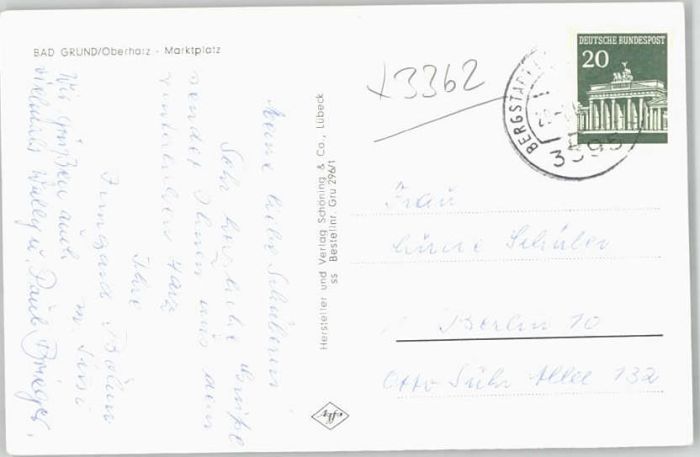 BAD GRUND/Oberharz - Marktplatz
x3362
DEUTSCHE BUNDESPOST
20
BERGSTADT
3395
Meine liebe Schülerin
Sehr herzliche Grüße
sendet Ihnen aus dem
Harz
Ihre
Irmgard
Wir grüßen auch
vielmals Willy u. Paul
Hersteller und Verlag Schöning & Co., Lübeck
ss Bestellnr. Gru 296/1
Frau
Schüler
Berlin 10
Otto Suhr Allee 132